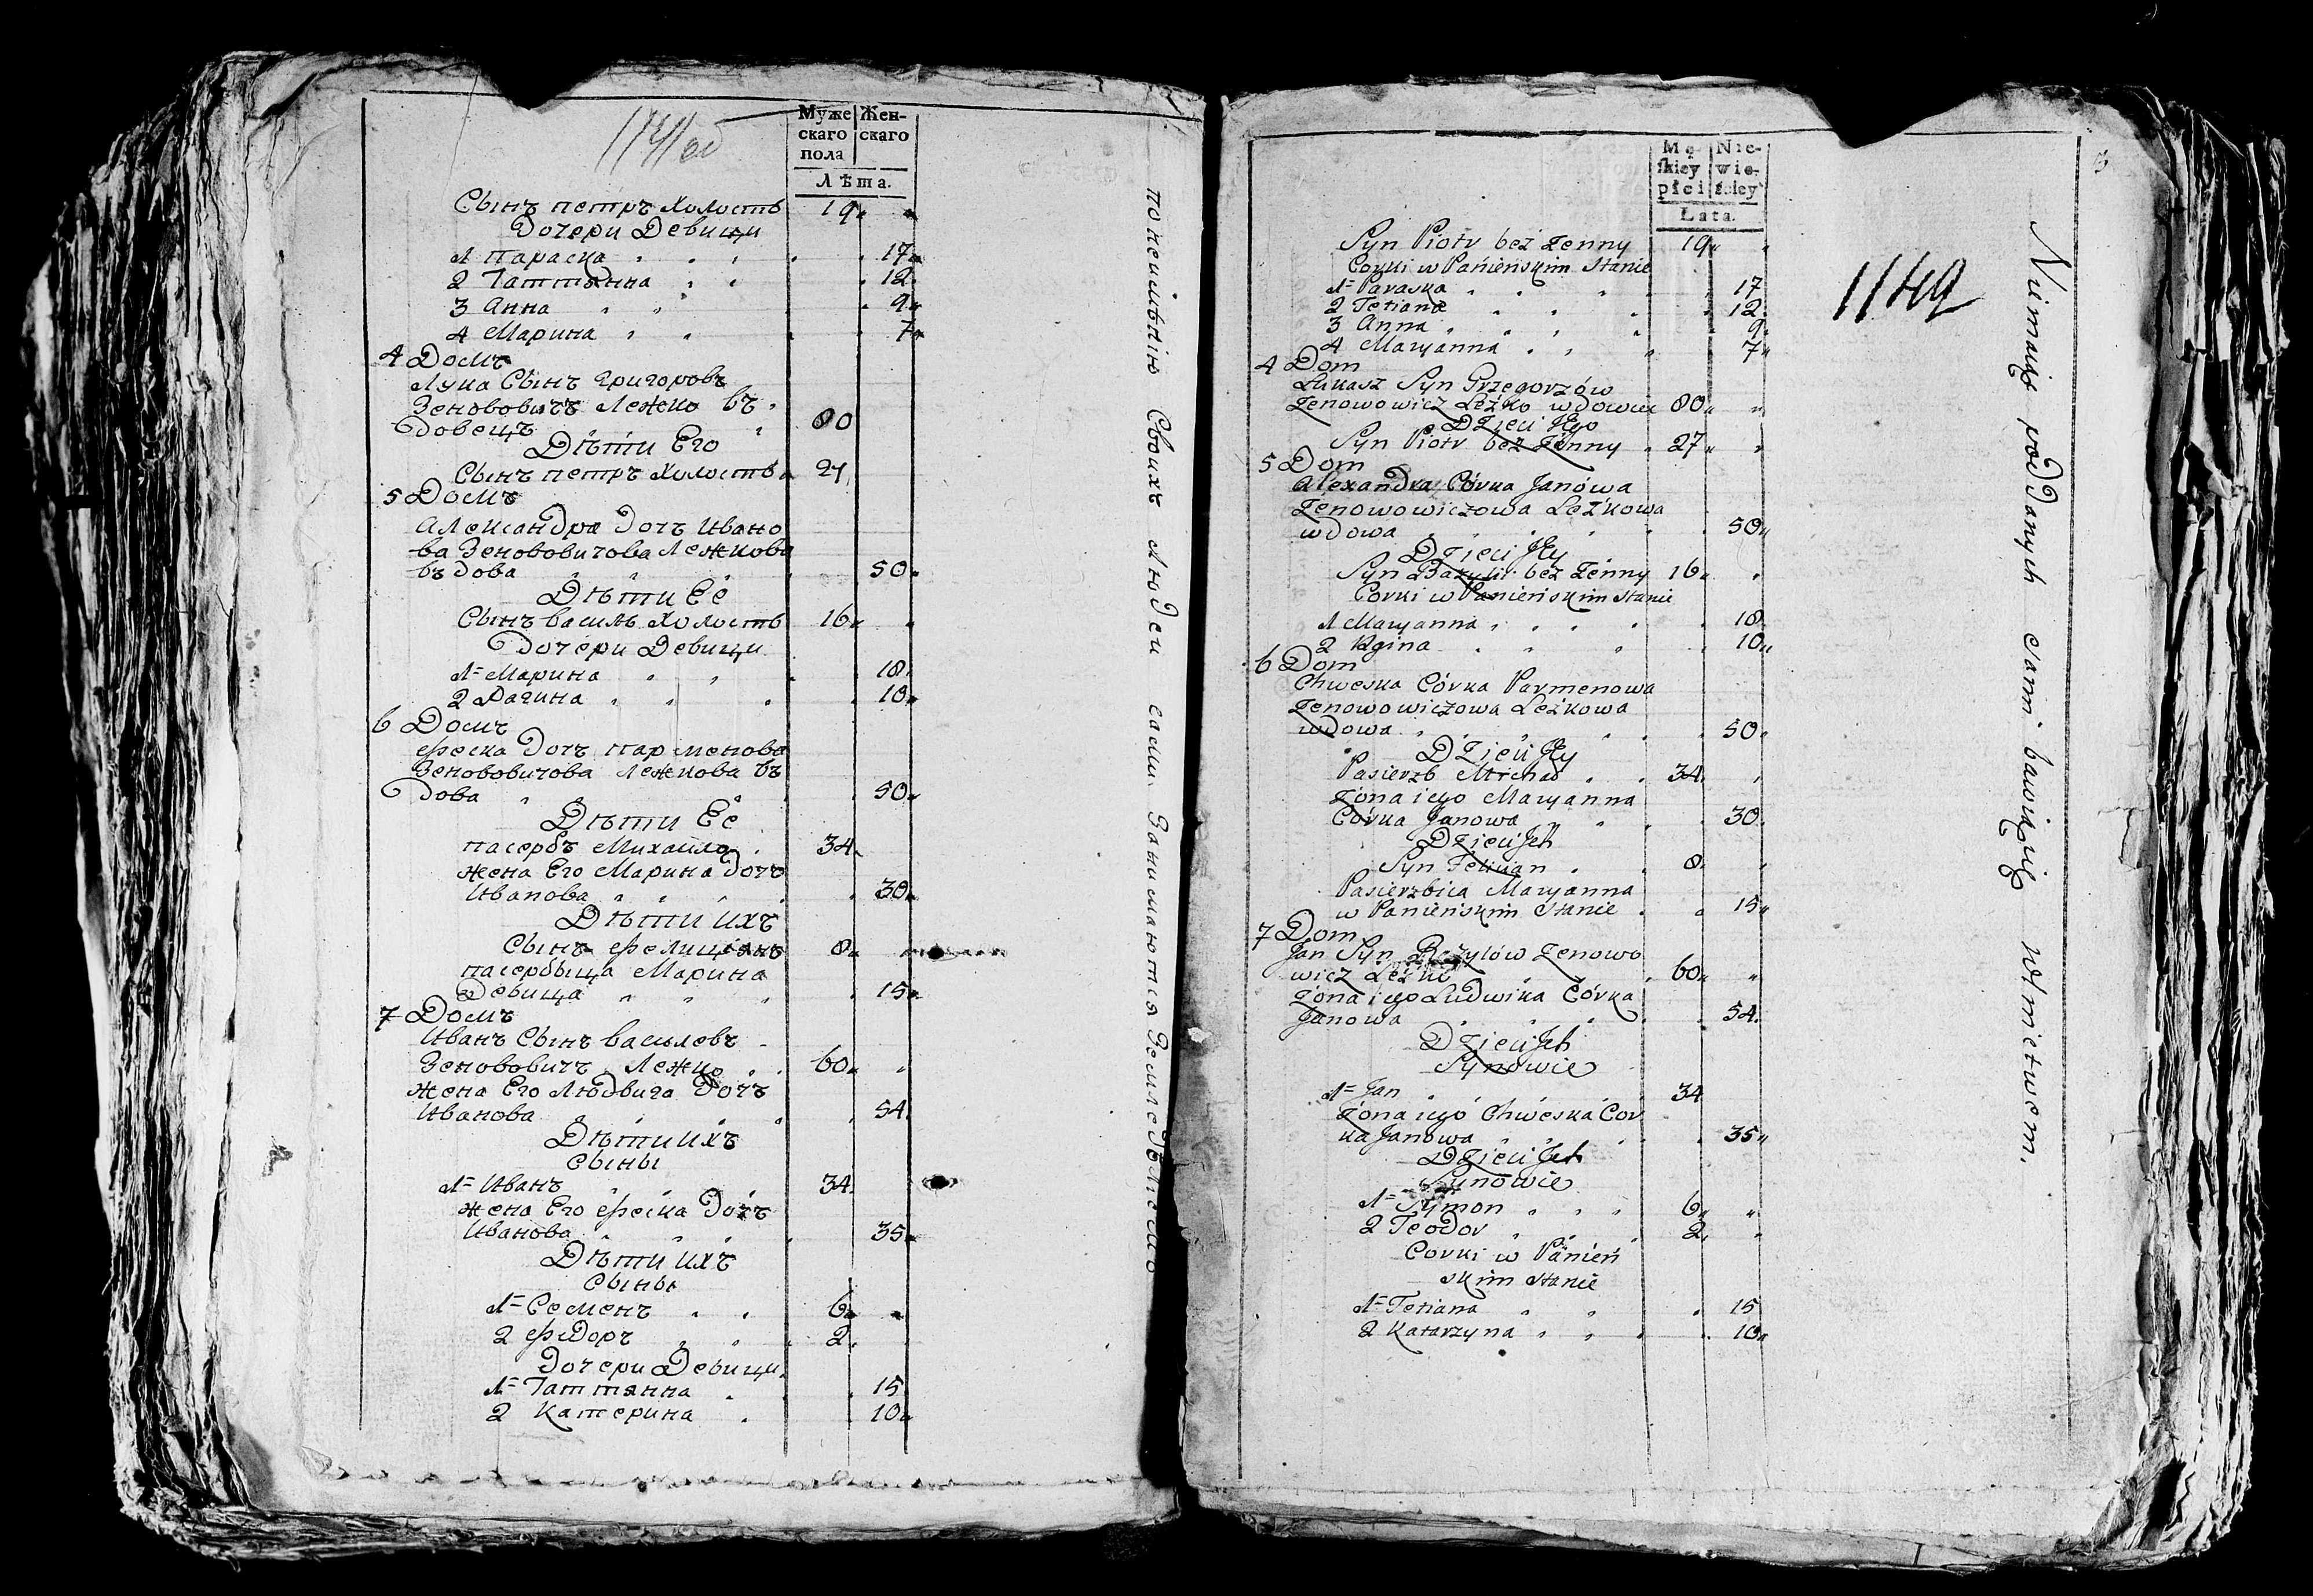 Муже Жен-
скаго скаго
пола
Лѣта.
Сынъ петръ Холостъ 19
Дочери Девици
1 Параска 17
2 Таттянна 12
3 Анна 9
4 Марина 7
4 Домъ
Лука Сынъ Григоровъ
Зенововичъ Лежко въ
довецъ 80
Дѣти Его
Сынъ петръ Холостъ 27
5 Домъ
Александра Дочъ Ивано
ва Зеновоичова Лежкова
въдова 50
Дѣти Её
Сынъ василь Холостъ 16
Дочери Девици
1 Марина 18
2 Рагина 10
6 Домъ
Феска Дочъ парменова
Зеновоичова Лежкова въ
дова 50
Дѣти Её
пасербъ Михайло 34
жена Его Марина Дочъ
Иванова 30
Дѣти ихъ
Сынъ Фелиціянъ 8
пасербица Марина
Девица 15
7 Домъ
Иванъ Сынъ василевъ
Зенововичъ Лежко 60
жена Его Людвига Дочъ
Иванова 54
Дѣти ихъ
Сыны
1 Иванъ 34
жена Его Феска Дочъ
Иванова 35
Дѣти ихъ
Сыны
1 Семенъ 6
2 Фіодоръ 2
Дочери Девици
1 Таттянна 15
2 Катерина 10
понеимѣнію Своихъ людей сами Занимаются Земледѣліемъ
Mę- Nie-
ſkiey wie-
płci ſciey
Lata.
Syn Piotr beż żenny 19
Corki w Panieńskim Stanie
1 Paraska 17
2 Tetiana 12
3 Anna 9
4 Maryanna 7
4 Dom
Łukasz Syn Grzegorzów
Zenowowicz Leżko wdowiec 80
Dzieci Jego
Syn Piotr beż żenny 27
5 Dom
Alexandra Córka Janówa
Zenowowiczowa Leżkowa
wdowa 50
Dzieci Jey
Syn Bazyli beż żenny 16
Corki w Panieńskim stanie
1 Maryanna 18
2 Rgina 10
6 Dom
Chweska Córka Parmenowa
Zenowowiczowa Leżkowa
wdowa 50
Dzieci Jey
Pasierzb Michał 34
żona iego Maryanna
Córka Janowa 30
Dzieci Jch
Syn Felician 8
Pasierzbica Maryanna
w Panieńskim Stanie 15
7 Dom
Jan Syn Bazylów Zenowo
wicz Leżko 60
żona iego Ludwika Córka
Janowa 54
Dzieci Jch
Synowie
1 Jan 34
żona iego Chweska Cor
ka Janowa 35
Dzieci Jch
Synowie
1 Symon 6
2 Teodor 2
Corki w Panień
skim stanie
1 Tetiana 15
2 Katarzyna 10
1149
Niemaiąc poddanych sami bawią się rolnictwem.